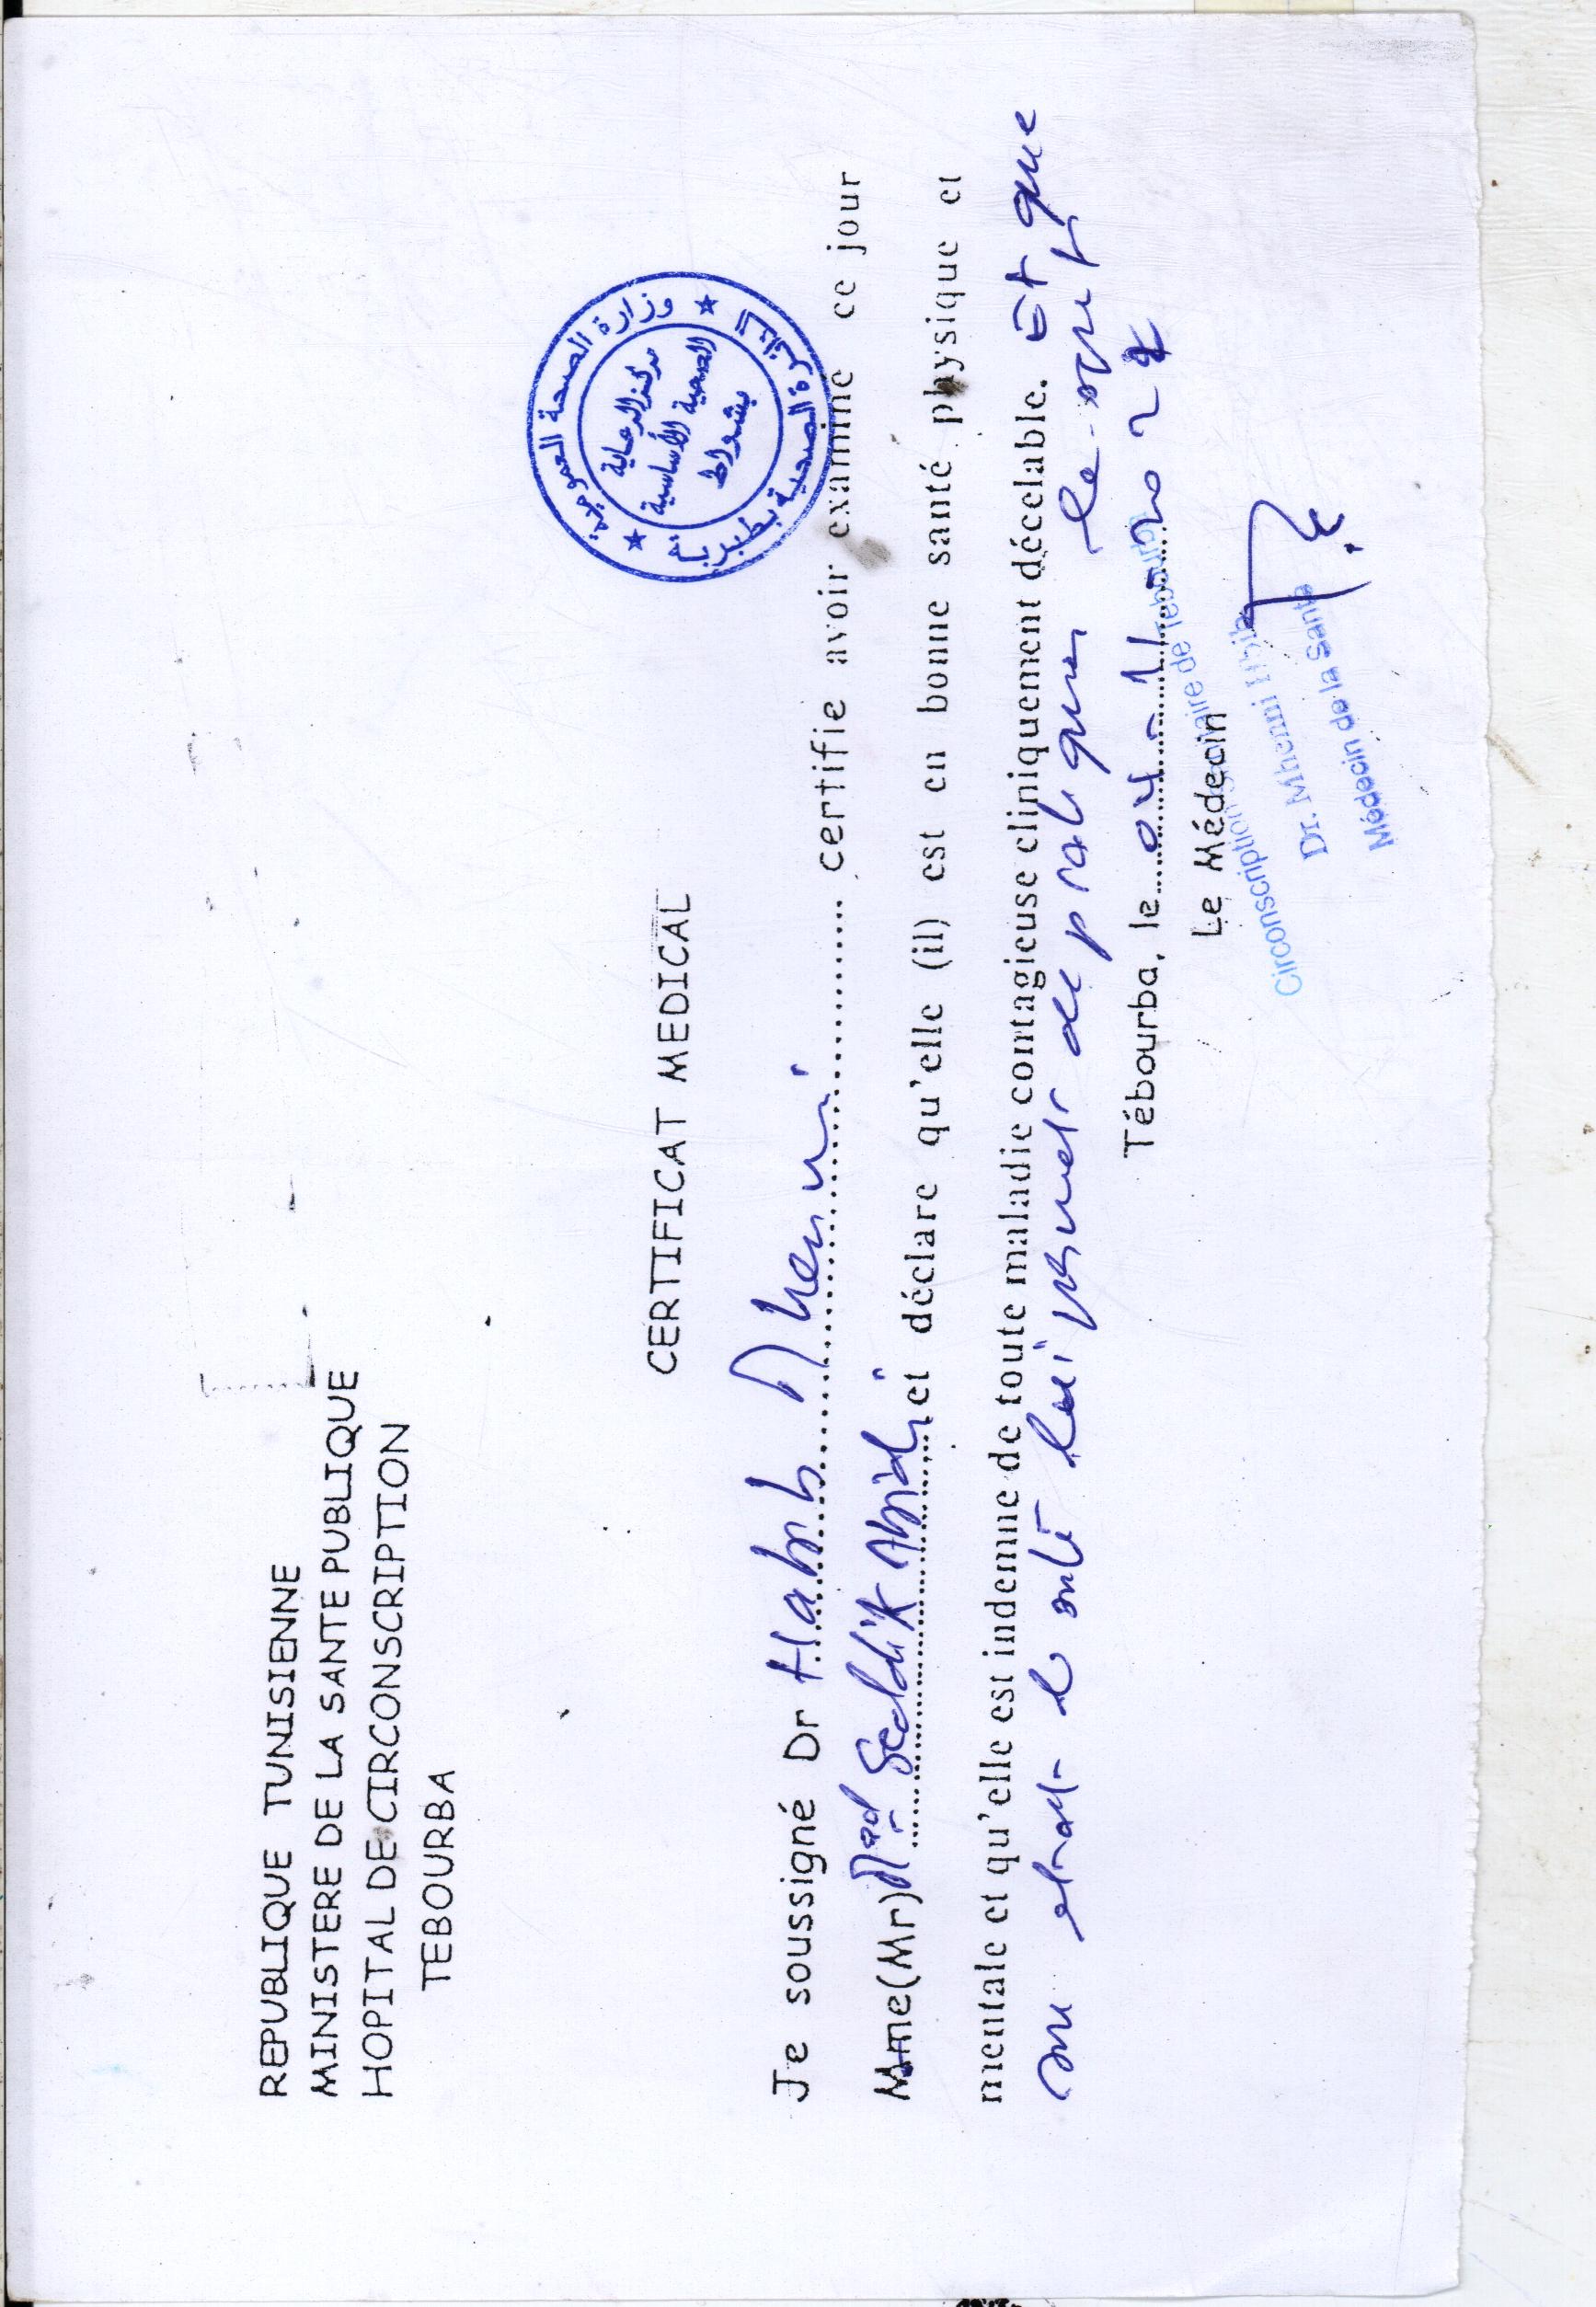 REPUBLIQUE TUNISIENNE
MINISTERE DE LA SANTE PUBLIQUE
HOPITAL DE CIRCONSCRIPTION
TEBOURBA
وزارة الصحة العمومية
مركز الرعاية
الصحية الأساسية
بشواط
الصحية بطبربة
CERTIFICAT MEDICAL
Je soussigné Dr Habib Mhenni certifie avoir examiné ce jour
Mme(Mr) Med Seddik Abidi et déclare qu'elle (il) est en bonne santé physique et
mentale et qu'elle est indemne de toute maladie contagieuse cliniquement décelable. Et que
son etat de santé lui permet de pratiquer le sport
Tébourba, le 04-11-202
Le Médecin
Circonscription de Tebourba
Dr. Mhenni
Médecin de la Santé